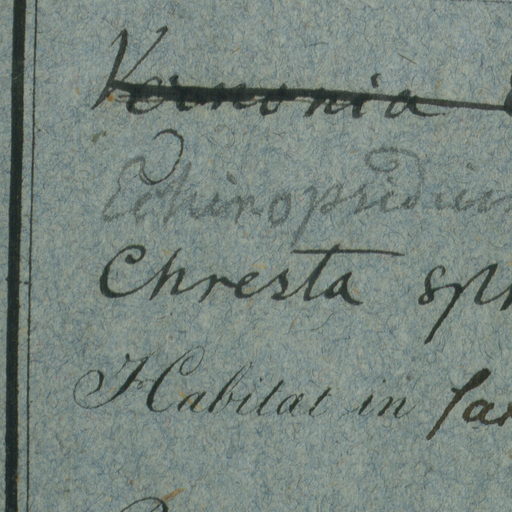 Vernonia
Echinopsidium
Chresta sph
Habitat in